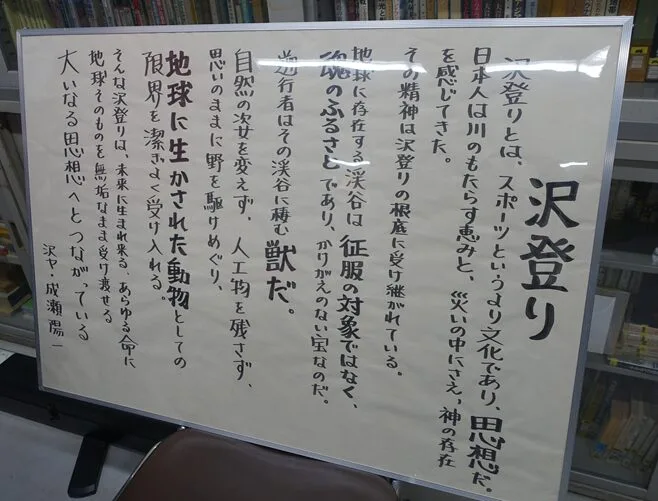 沢登り
沢登りとは、スポーツというより文化であり、思想だ。
日本人は川のもたらす恵みと、災いの中にさえ、神の存在
を感じてきた。
その精神は沢登りの根底に受け継がれている。
地球に存在する渓谷は征服の対象ではなく、
魂のふるさとであり、かりがえのない宝なのだ。
遡行者はその渓谷に棲む獣だ。
自然の姿を変えず、人工物を残さず、
思いのままに野を駆けめぐり、
地球に生かされた動物としての
限界を潔ぎよく受け入れる。
そんな沢登りは、未来に生まれ来る、あらゆる命に
地球そのものを無垢なまま受け渡せる
大いなる思想へとつながっている
沢ヤ・成瀬陽一